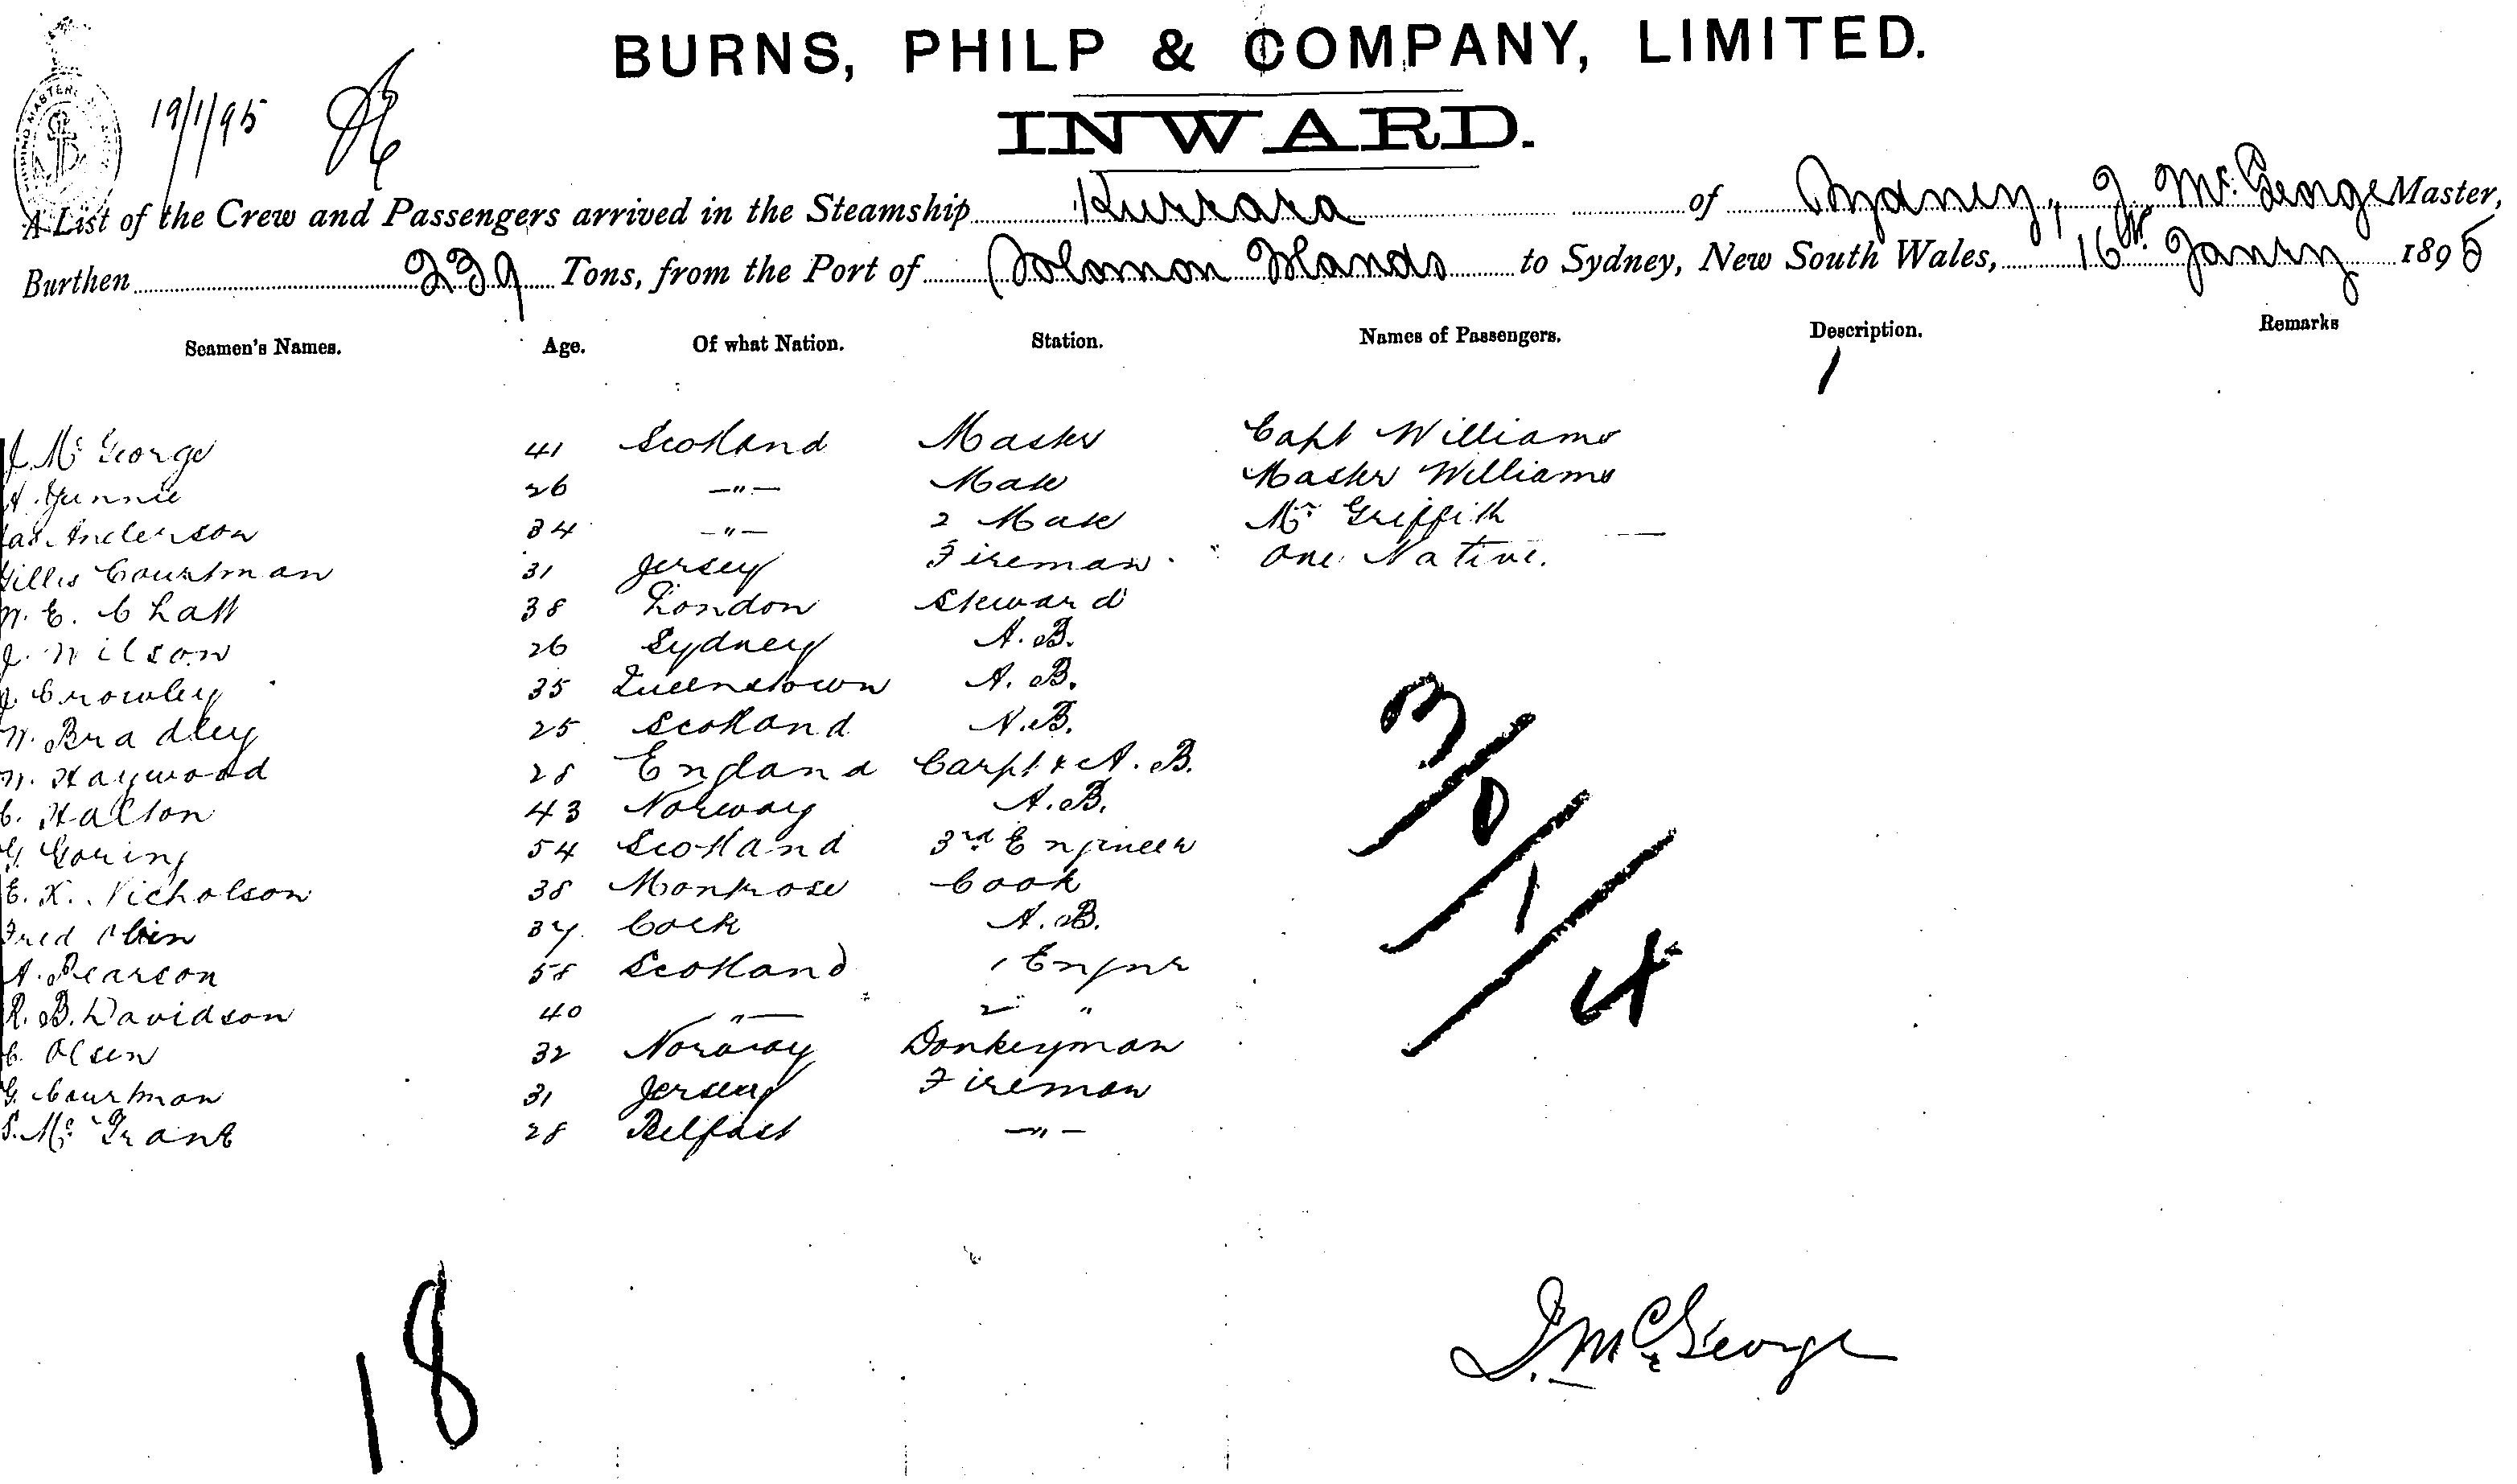 BURNS, PHILP & COMPANY, LIMITED.
INWARD.
19/1/95
A List of the Crew and Passengers arrived in the Steamship Kurrara of Sydney, J. McGeorge Master,
Burthen 239 Tons, from the Port of Solomon Islands to Sydney, New South Wales, 16th Janry 1895
Seamen's Names. Age. Of what Nation. Station. Names of Passengers. Description. Remarks
J. Mc George 41 Scotland Master Capt Williams
26 —"— Mate Master Williams
Jas. Anderson 34 —"— 2 Mate Mr Griffith
Gilles Courtman 31 Jersey Fireman One Native.
W. E. Chatt 38 London Steward
J. Wilson 26 Sydney A. B.
J. Crowley 35 Queenstown A. B.
W. Bradley 25 Scotland A. B.
W. Haywood 28 England Carpt & A. B.
C. Halton 43 Norway A. B.
G. Goring 54 Scotland 3rd Engineer
E. K. Nicholson 38 Montrose Cook
Fred 37 Cork A. B.
A. Pearson 58 Scotland 1 Engnr
R. B. Davidson 40 —"— 2 "
C. Olsen 32 Norway Donkeyman
G. Courtman 31 Jersey Fireman
S. Mc Grant 28 Belfast —"—
18
J. McGeorge